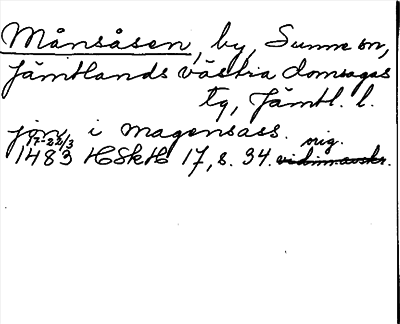 Månsåsen, by, Sunne sn,
Jämtlands västra domsagas
tg, Jämtl. l.
jon i magensass. orig.
17-22/3
1483 HSkH 17, s. 34. vidimavskr.